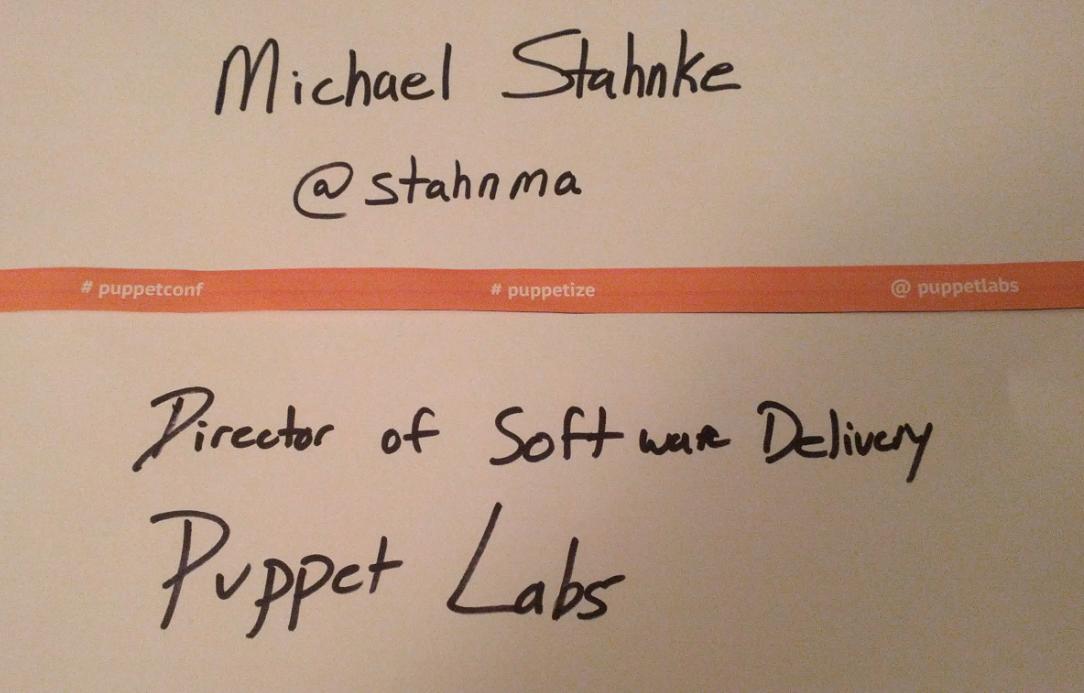 Michael Stahnke
@stahnma
# puppetconf # puppetize @ puppetlabs
Director of Software Delivery
Puppet Labs